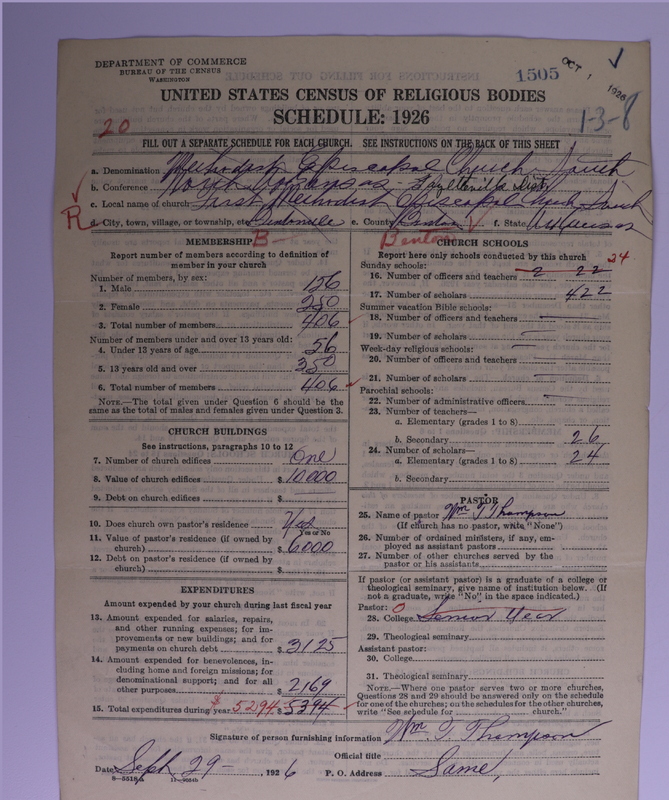 DEPARTMENT OF COMMERCE
BUREAU OF THE CENSUS
WASHINGTON
1505
OCT 1, 1926
UNITED STATES CENSUS OF RELIGIOUS BODIES
SCHEDULE: 1926
20
1-3-8
FILL OUT A SEPARATE SCHEDULE FOR EACH CHURCH. SEE INSTRUCTIONS ON THE BACK OF THIS SHEET
a. Denomination Methodist Episcopal Church South
b. Conference North Arkansas - Fayetteville Dist
c. Local name of church First Methodist Episcopal Church South
R d. City, town, village, or township, etc Bentonville e. County Benton f. State Arkansas
B- Benton
MEMBERSHIP
Report number of members according to definition of member in your church
Number of members, by sex:
1. Male 156
2. Female 250
3. Total number of members 406
Number of members under and over 13 years old:
4. Under 13 years of age 56
5. 13 years old and over 350
6. Total number of members 406
NOTE.—The total given under Question 6 should be the same as the total of males and females given under Question 3.
CHURCH BUILDINGS
See instructions, paragraphs 10 to 12
7. Number of church edifices One
8. Value of church edifices $ 10000
9. Debt on church edifices $
10. Does church own pastor's residence Yes
Yes or No
11. Value of pastor's residence (if owned by church) $ 6000
12. Debt on pastor's residence (if owned by church) $
EXPENDITURES
Amount expended by your church during last fiscal year
13. Amount expended for salaries, repairs, and other running expenses; for improvements or new buildings; and for payments on church debt $ 3125
14. Amount expended for benevolences, including home and foreign missions; for denominational support; and for all other purposes $ 2169
15. Total expenditures during year $ 5294 $ 5394
CHURCH SCHOOLS
Report here only schools conducted by this church
Sunday schools: 24
16. Number of officers and teachers 2 22
17. Number of scholars 422
Summer vacation Bible schools:
18. Number of officers and teachers
19. Number of scholars
Week-day religious schools:
20. Number of officers and teachers
21. Number of scholars
Parochial schools:
22. Number of administrative officers
23. Number of teachers—
a. Elementary (grades 1 to 8)
b. Secondary 26
24. Number of scholars—
a. Elementary (grades 1 to 8) 24
b. Secondary
PASTOR
25. Name of pastor Wm T Thompson
(If church has no pastor, write "None")
26. Number of ordained ministers, if any, employed as assistant pastors
27. Number of other churches served by the pastor or his assistants
If pastor (or assistant pastor) is a graduate of a college or theological seminary, give name of institution below. (If not a graduate, write "No" in the space indicated.)
Pastor: O
28. College Senior Year
29. Theological seminary
Assistant pastor:
30. College
31. Theological seminary
NOTE.—Where one pastor serves two or more churches, Questions 28 and 29 should be answered only on the schedule for one of the churches; on the schedules for the other churches, write "See schedule for church."
Signature of person furnishing information Wm. T Thompson
Official title
Date Sept 29- , 1926 P. O. Address Same,